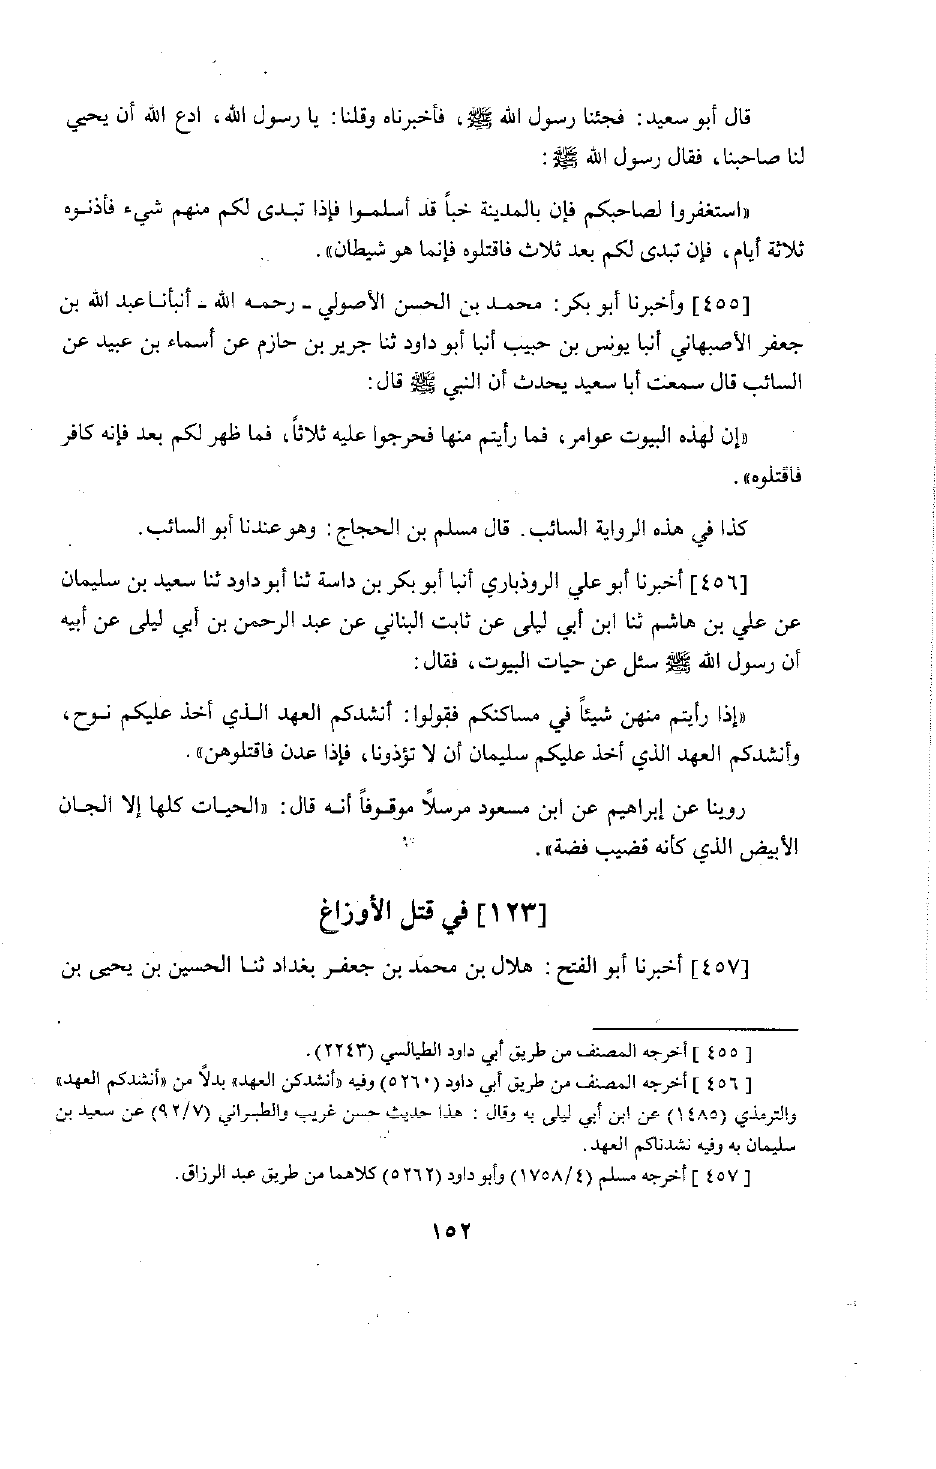 قال أبو سعيد: فجئنا رسول الله ﷺ، فأخبرناه وقلنا: يا رسول الله، ادع الله أن يحيي
لنا صاحبنا، فقال رسول الله ﷺ:
«استغفروا لصاحبكم فإن بالمدينة خبأً قد أسلموا فإذا تبدى لكم منهم شيء فأذنوه
ثلاثة أيام، فإن تبدى لكم بعد ثلاث فاقتلوه فإنما هو شيطان».
[٤٥٥] وأخبرنا أبو بكر: محمد بن الحسن الأصولي ـ رحمه الله ـ أنبأنا عبد الله بن
جعفر الأصبهاني أنبا يونس بن حبيب أنبا أبو داود ثنا جرير بن حازم عن أسماء بن عبيد عن
السائب قال سمعت أبا سعيد يحدث أن النبي ﷺ قال:
«إن لهذه البيوت عوامر، فما رأيتم منها فحرجوا عليه ثلاثاً، فما ظهر لكم بعد فإنه كافر
فاقتلوه».
كذا في هذه الرواية السائب. قال مسلم بن الحجاج: وهو عندنا أبو السائب.
[٤٥٦] أخبرنا أبو علي الروذباري أنبا أبو بكر بن داسة ثنا أبو داود ثنا سعيد بن سليمان
عن علي بن هاشم ثنا ابن أبي ليلى عن ثابت البناني عن عبد الرحمن بن أبي ليلى عن أبيه
أن رسول الله ﷺ سئل عن حيات البيوت، فقال:
«إذا رأيتم منهن شيئاً في مساكنكم فقولوا: أنشدكم العهد الذي أخذ عليكم نوح،
وأنشدكم العهد الذي أخذ عليكم سليمان أن لا تؤذونا، فإذا عدن فاقتلوهن».
روينا عن إبراهيم عن ابن مسعود مرسلاً موقوفاً أنه قال: «الحيات كلها إلا الجان
الأبيض الذي كأنه قضيب فضة».
[١٢٣] في قتل الأوزاغ
[٤٥٧] أخبرنا أبو الفتح: هلال بن محمد بن جعفر بغداد ثنا الحسين بن يحيى بن
[٤٥٥] أخرجه المصنف من طريق أبي داود الطيالسي (٢٢٤٣).
[٤٥٦] أخرجه المصنف من طريق أبي داود (٥٢٦٠) وفيه «أنشدكن العهد» بدلاً من «أنشدكم العهد»
والترمذي (١٤٨٥) عن ابن أبي ليلى به وقال: هذا حديث حسن غريب والطبراني (٩٢/٧) عن سعيد بن
سليمان به وفيه نشدناكم العهد.
[٤٥٧] أخرجه مسلم (١٧٥٨/٤) وأبو داود (٥٢٦٢) كلاهما من طريق عبد الرزاق.
١٥٢